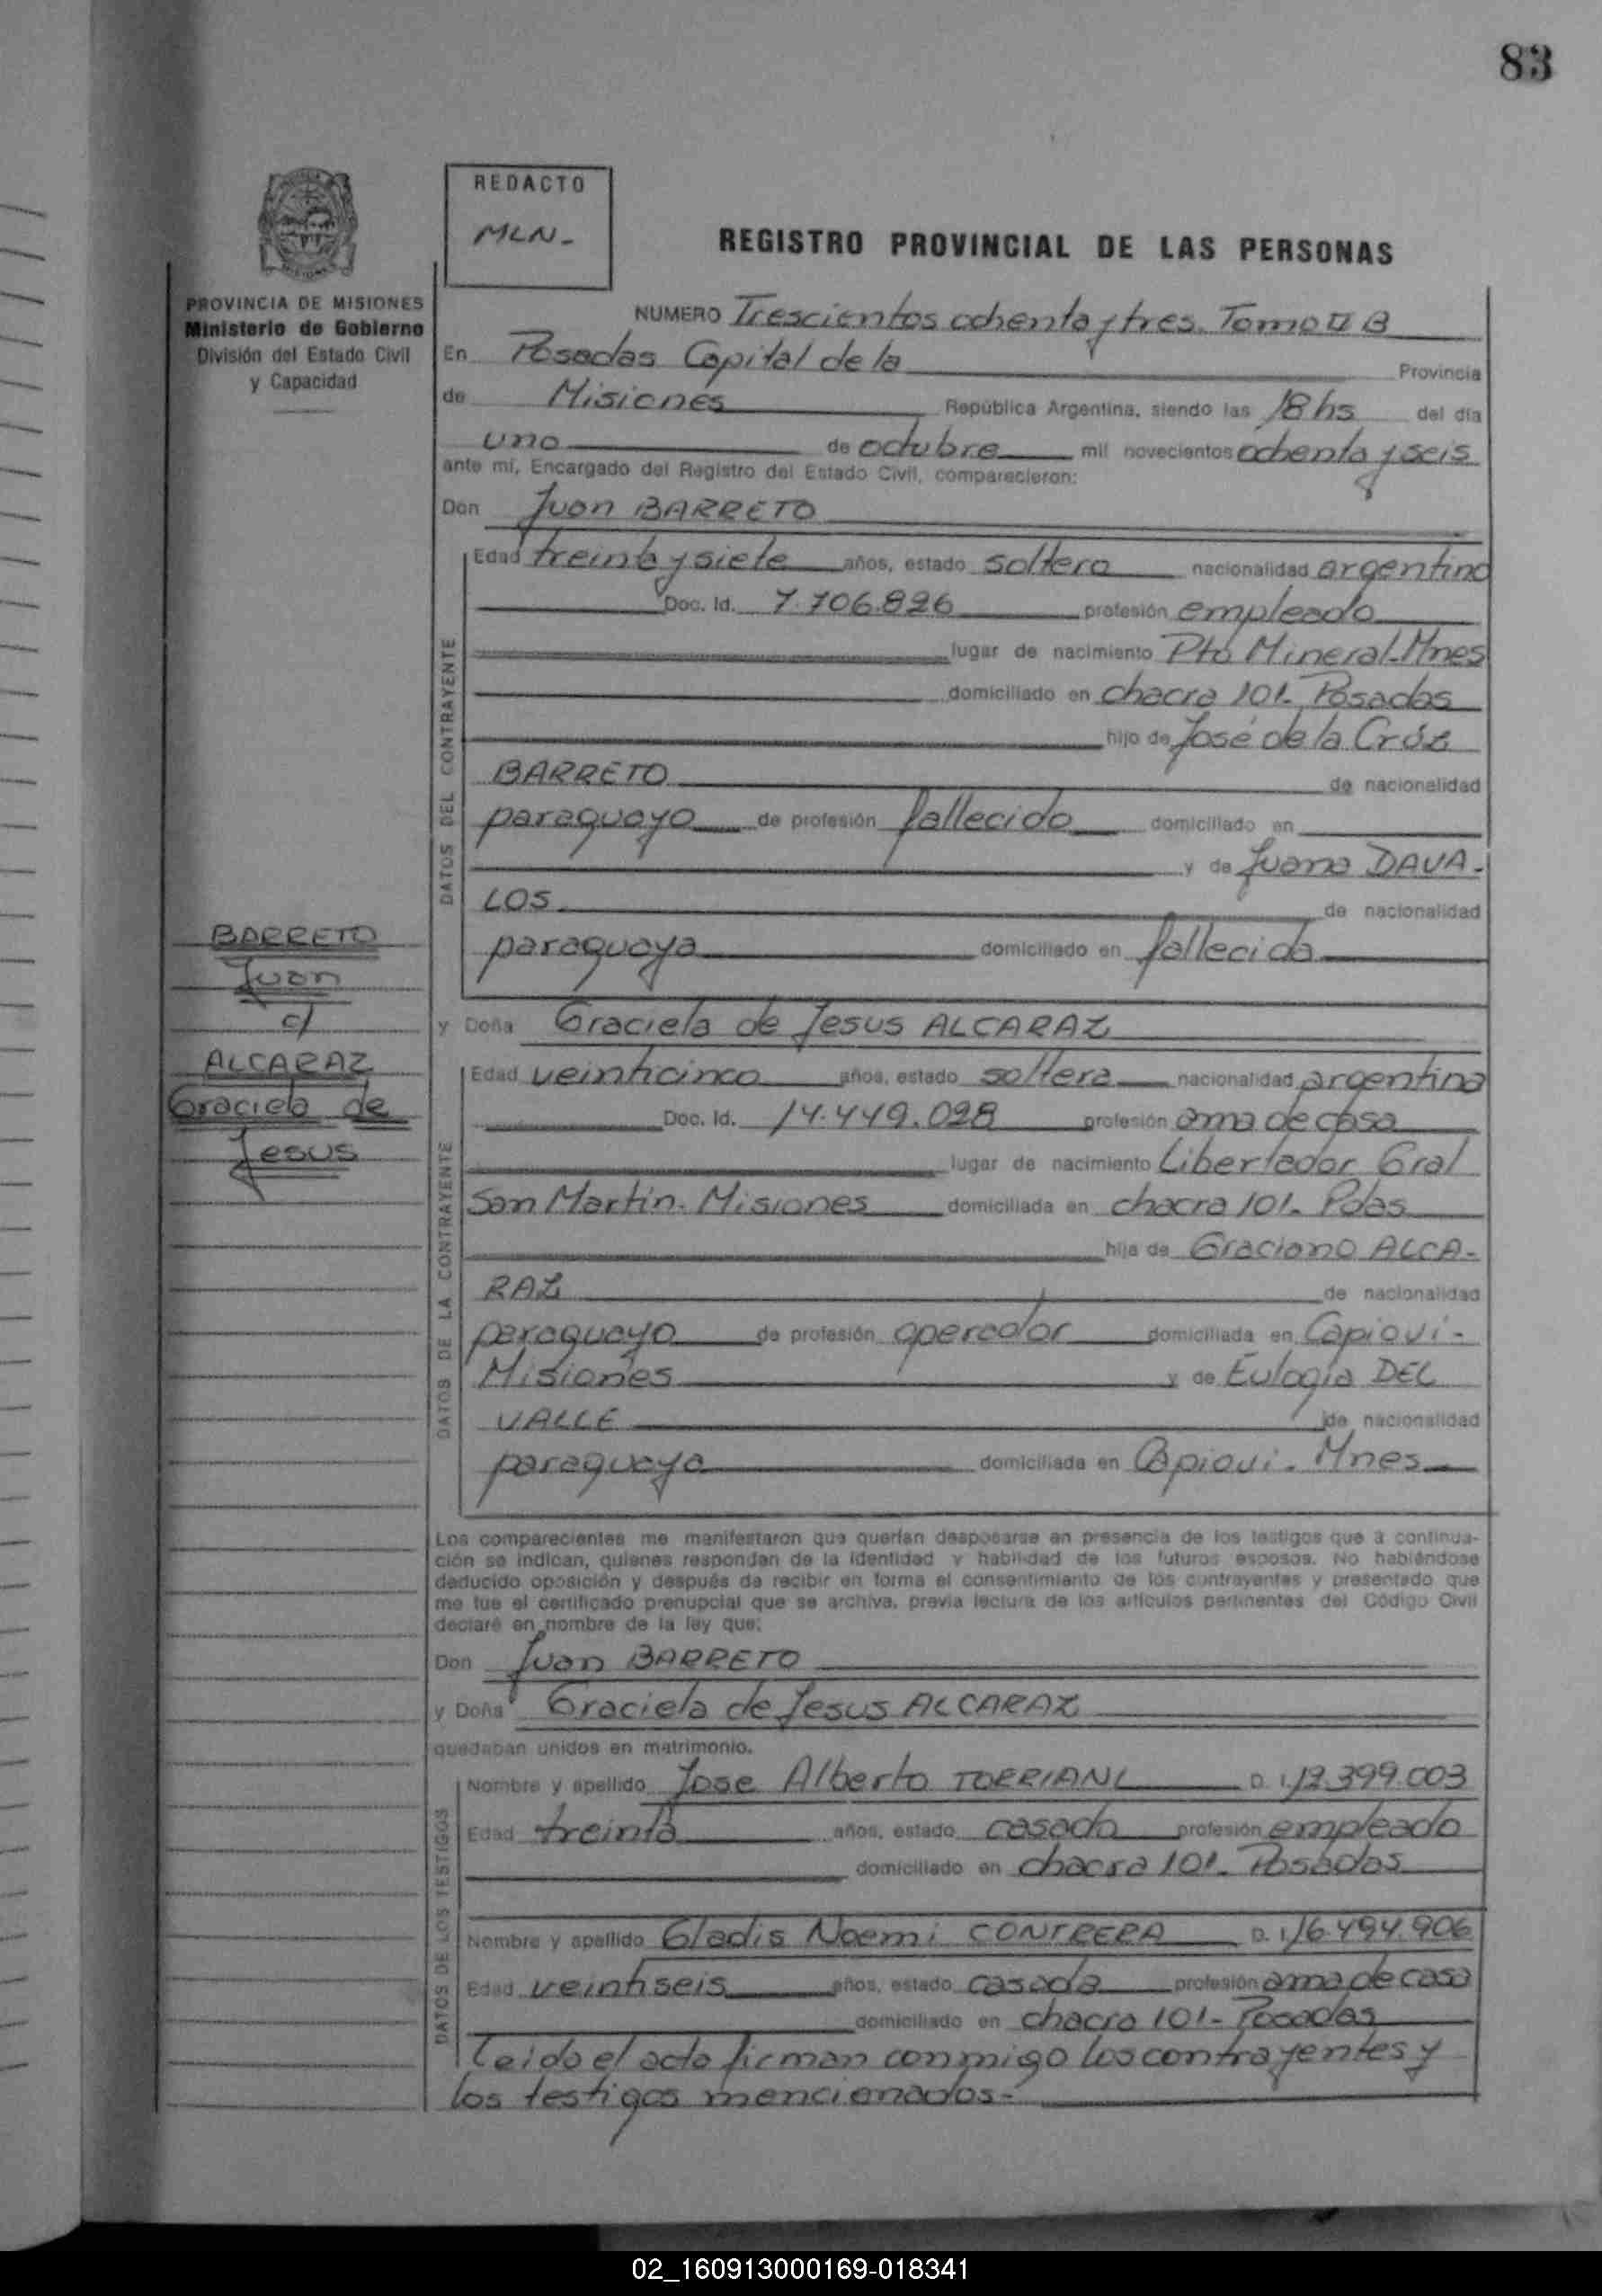 83
REDACTO
MLN-
REGISTRO PROVINCIAL DE LAS PERSONAS
PROVINCIA DE MISIONES
Ministerio de Gobierno
División del Estado Civil
y Capacidad
NUMERO Trescientos ochenta y tres. Tomo II B
En Posadas Capital de la Provincia
de Misiones República Argentina, siendo las 18 hs del día
uno de octubre mil novecientos ochenta y seis
ante mí, Encargado del Registro del Estado Civil, comparecieron:
Don Juan BARRETO
DATOS DEL CONTRAYENTE
Edad treinta y siete años, estado soltero nacionalidad argentino
Doc. Id. 7.706.826 profesión empleado
lugar de nacimiento Pto Mineral-Mnes
domiciliado en chacra 101- Posadas
hijo de José de la Crúz
BARRETO de nacionalidad
paraguayo de profesión fallecido domiciliado en
y de Juana DAVA-
LOS de nacionalidad
paraguaya domiciliado en fallecida
BARRETO
Juan
c/
ALCARAZ
Graciela de
Jesus
y Doña Graciela de Jesus ALCARAZ
DATOS DE LA CONTRAYENTE
Edad veinticinco años, estado soltera nacionalidad argentina
Doc. Id. 14.449.028 profesión ama de casa
lugar de nacimiento Libertador Gral
San Martin. Misiones domiciliada en chacra 101- Pdas
hija de Graciano ALCA-
RAZ de nacionalidad
paraguayo de profesión operador domiciliada en Capiovi-
Misiones y de Eulogia DEL
VALLE de nacionalidad
paraguaya domiciliada en Capiovi. Mnes
Los comparecientes me manifestaron que querían desposarse en presencia de los testigos que a continua-
ción se indican, quienes responden de la identidad y habilidad de los futuros esposos. No habiéndose
deducido oposición y después de recibir en forma el consentimiento de los contrayentes y presentado que
me fue el certificado prenupcial que se archiva, previa lectura de los artículos pertinentes del Código Civil
declaré en nombre de la ley que:
Don Juan BARRETO
y Doña Graciela de Jesus ALCARAZ
quedaban unidos en matrimonio.
DATOS DE LOS TESTIGOS
Nombre y apellido Jose Alberto TORRIANI D. I. 12.399.003
Edad treinta años, estado casado profesión empleado
domiciliado en chacra 101- Posadas
Nombre y apellido Gladis Noemi CONTRERA D. I. 16.494.906
Edad veintiseis años, estado casada profesión ama de casa
domiciliado en chacra 101- Posadas
Leida el acta firman conmigo los contrayentes y
los testigos mencionados-
02_160913000169-018341